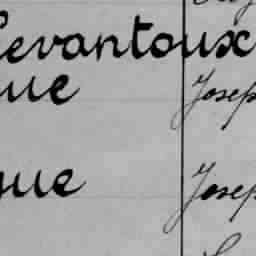 Levantoux
ue Josep
que Josep